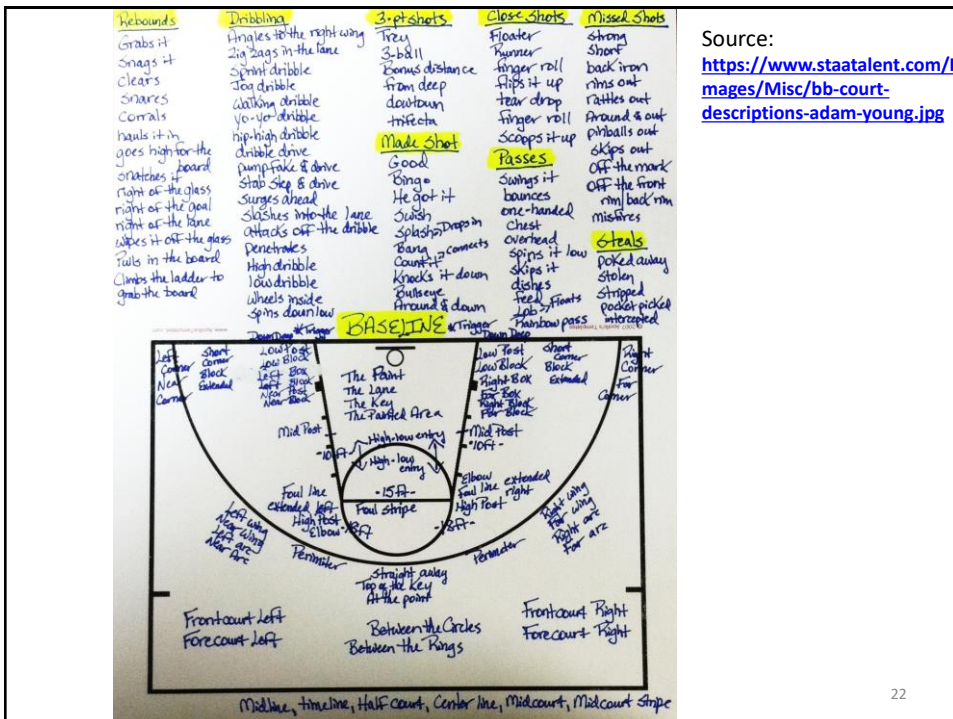 Rebounds
Grabs it
Snags it
Clears
Snares
Corrals
hauls it in
goes high for the
board
snatches it
right of the glass
right of the goal
right of the lane
wipes it off the glass
Pulls in the board
Climbs the ladder to
grab the board
Dribbling
Angles to the right wing
Zig zags in the lane
Sprint dribble
Jog dribble
Walking dribble
yo-yo dribble
hip-high dribble
dribble drive
pump fake & drive
Stab step & drive
Surges ahead
Slashes into the lane
attacks off the dribble
penetrates
High dribble
low dribble
wheels inside
Spins down low
3-pt shots
Trey
3-ball
Bonus distance
from deep
dowtown
trifecta
Made Shot
Good
Bingo
He got it
Swish
Splash, Drops in
Bang
Count it, connects
Knocks it down
Bullseye
Around & down
Close Shots
Floater
Runner
finger roll
flips it up
tear drop
finger roll
Scoops it up
Passes
Swings it
bounces
one-handed
chest
overhead
spins it low
skips it
dishes
feed
Lob, Floats
Rainbow pass
Missed Shots
strong
short
back iron
rims out
rattles out
Around & out
pinballs out
skips out
off the mark
off the front
rim/back rim
misfires
Steals
poked away
stolen
stripped
pocket picked
intercepted
BASELINE
Down Deep *Trigger
*Trigger
Down Deep
Left
Corner
Near
Corner
Short
Corner
Block
Extended
Low Post
Low Block
Left Box
Left Block
Near Post
Near Block
The Paint
The Lane
The Key
The Painted Area
Low Post
Low Block
Right Box
Far Box
Right Block
Far Block
Short
Corner
Block
Extended
Right
Corner
Far
Corner
Mid Post
-10ft-
High-low entry
High-low
entry
Mid Post
-10ft-
Foul line
extended left
High Post
Elbow
-18ft-
-15ft-
Foul stripe
Elbow
Foul line extended
right
High Post
-18ft-
Left wing
Near wing
Left arc
Near Arc
Perimiter
Perimeter
Right wing
Far wing
Right arc
Far arc
Straight away
Top of the Key
At the point
Frontcourt Left
Forecourt Left
Between the Circles
Between the Rings
Frontcourt Right
Forecourt Right
Midline, timeline, Half court, Center line, Midcourt, Midcourt stripe
Source:
https://www.staatalent.com/I
mages/Misc/bb-court-
descriptions-adam-young.jpg
22